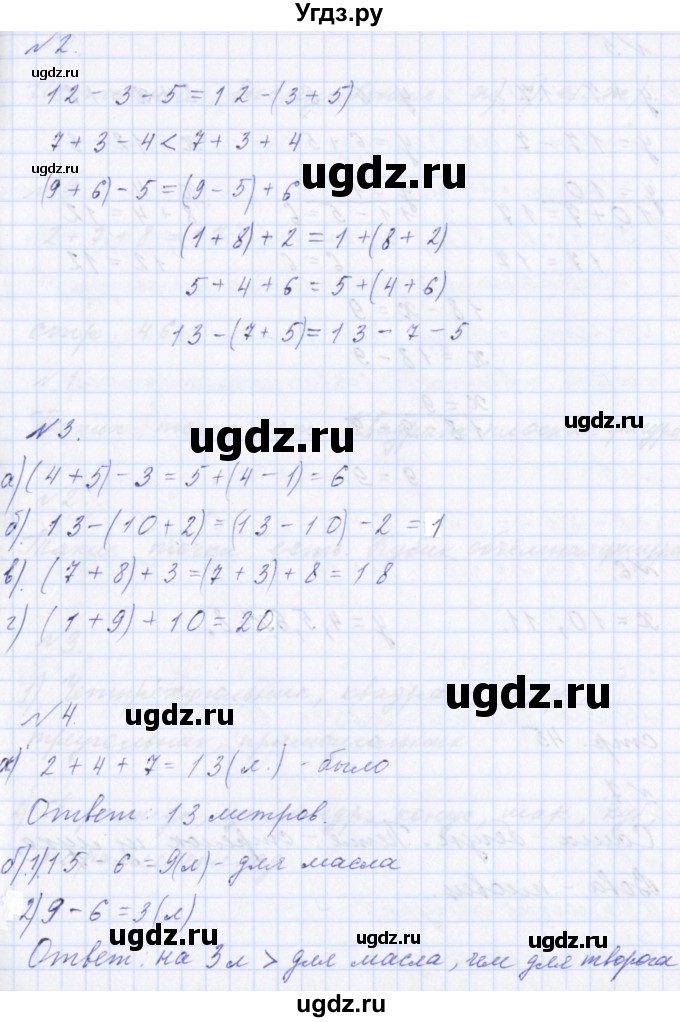 Угдз.ру
№2.
ugdz.ru
12 - 3 - 5 = 12 - (3 + 5)
7 + 3 - 4 < 7 + 3 + 4
ugdz.ru
(9 + 6) - 5 = (9 - 5) + 6
ugdz.ru
(1 + 8) + 2 = 1 + (8 + 2)
5 + 4 + 6 = 5 + (4 + 6)
13 - (7 + 5) = 13 - 7 - 5
№3.
ugdz.ru
ugdz.ru
а) (4 + 5) - 3 = 5 + (4 - 1) = 6
б). 13 - (10 + 2) = (13 - 10) - 2 = 1
в). (7 + 8) + 3 = (7 + 3) + 8 = 18
г) (1 + 9) + 10 = 20.
ugdz.ru
№4.
ugdz.ru
ugdz.ru
а) 2 + 4 + 7 = 13 (л.) - было
Ответ: 13 литров.
ugdz.ru
б). 1). 15 - 6 = 9 (л) - для масла
2) 9 - 6 = 3 (л)
ugdz.ru
ugdz.ru
Ответ: на 3 л > для масла, чем для творога
ugdz.ru
ugdz.ru